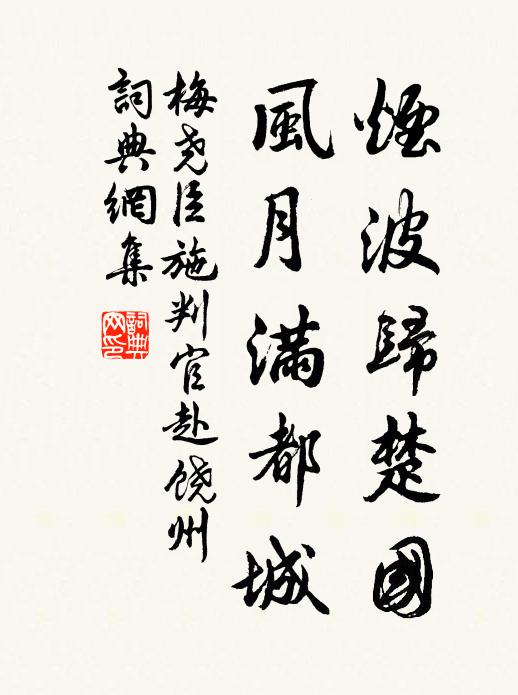 煙波歸楚國
風月滿都城
梅尧臣施判官赴饶州
詞典網集
詞典
网印